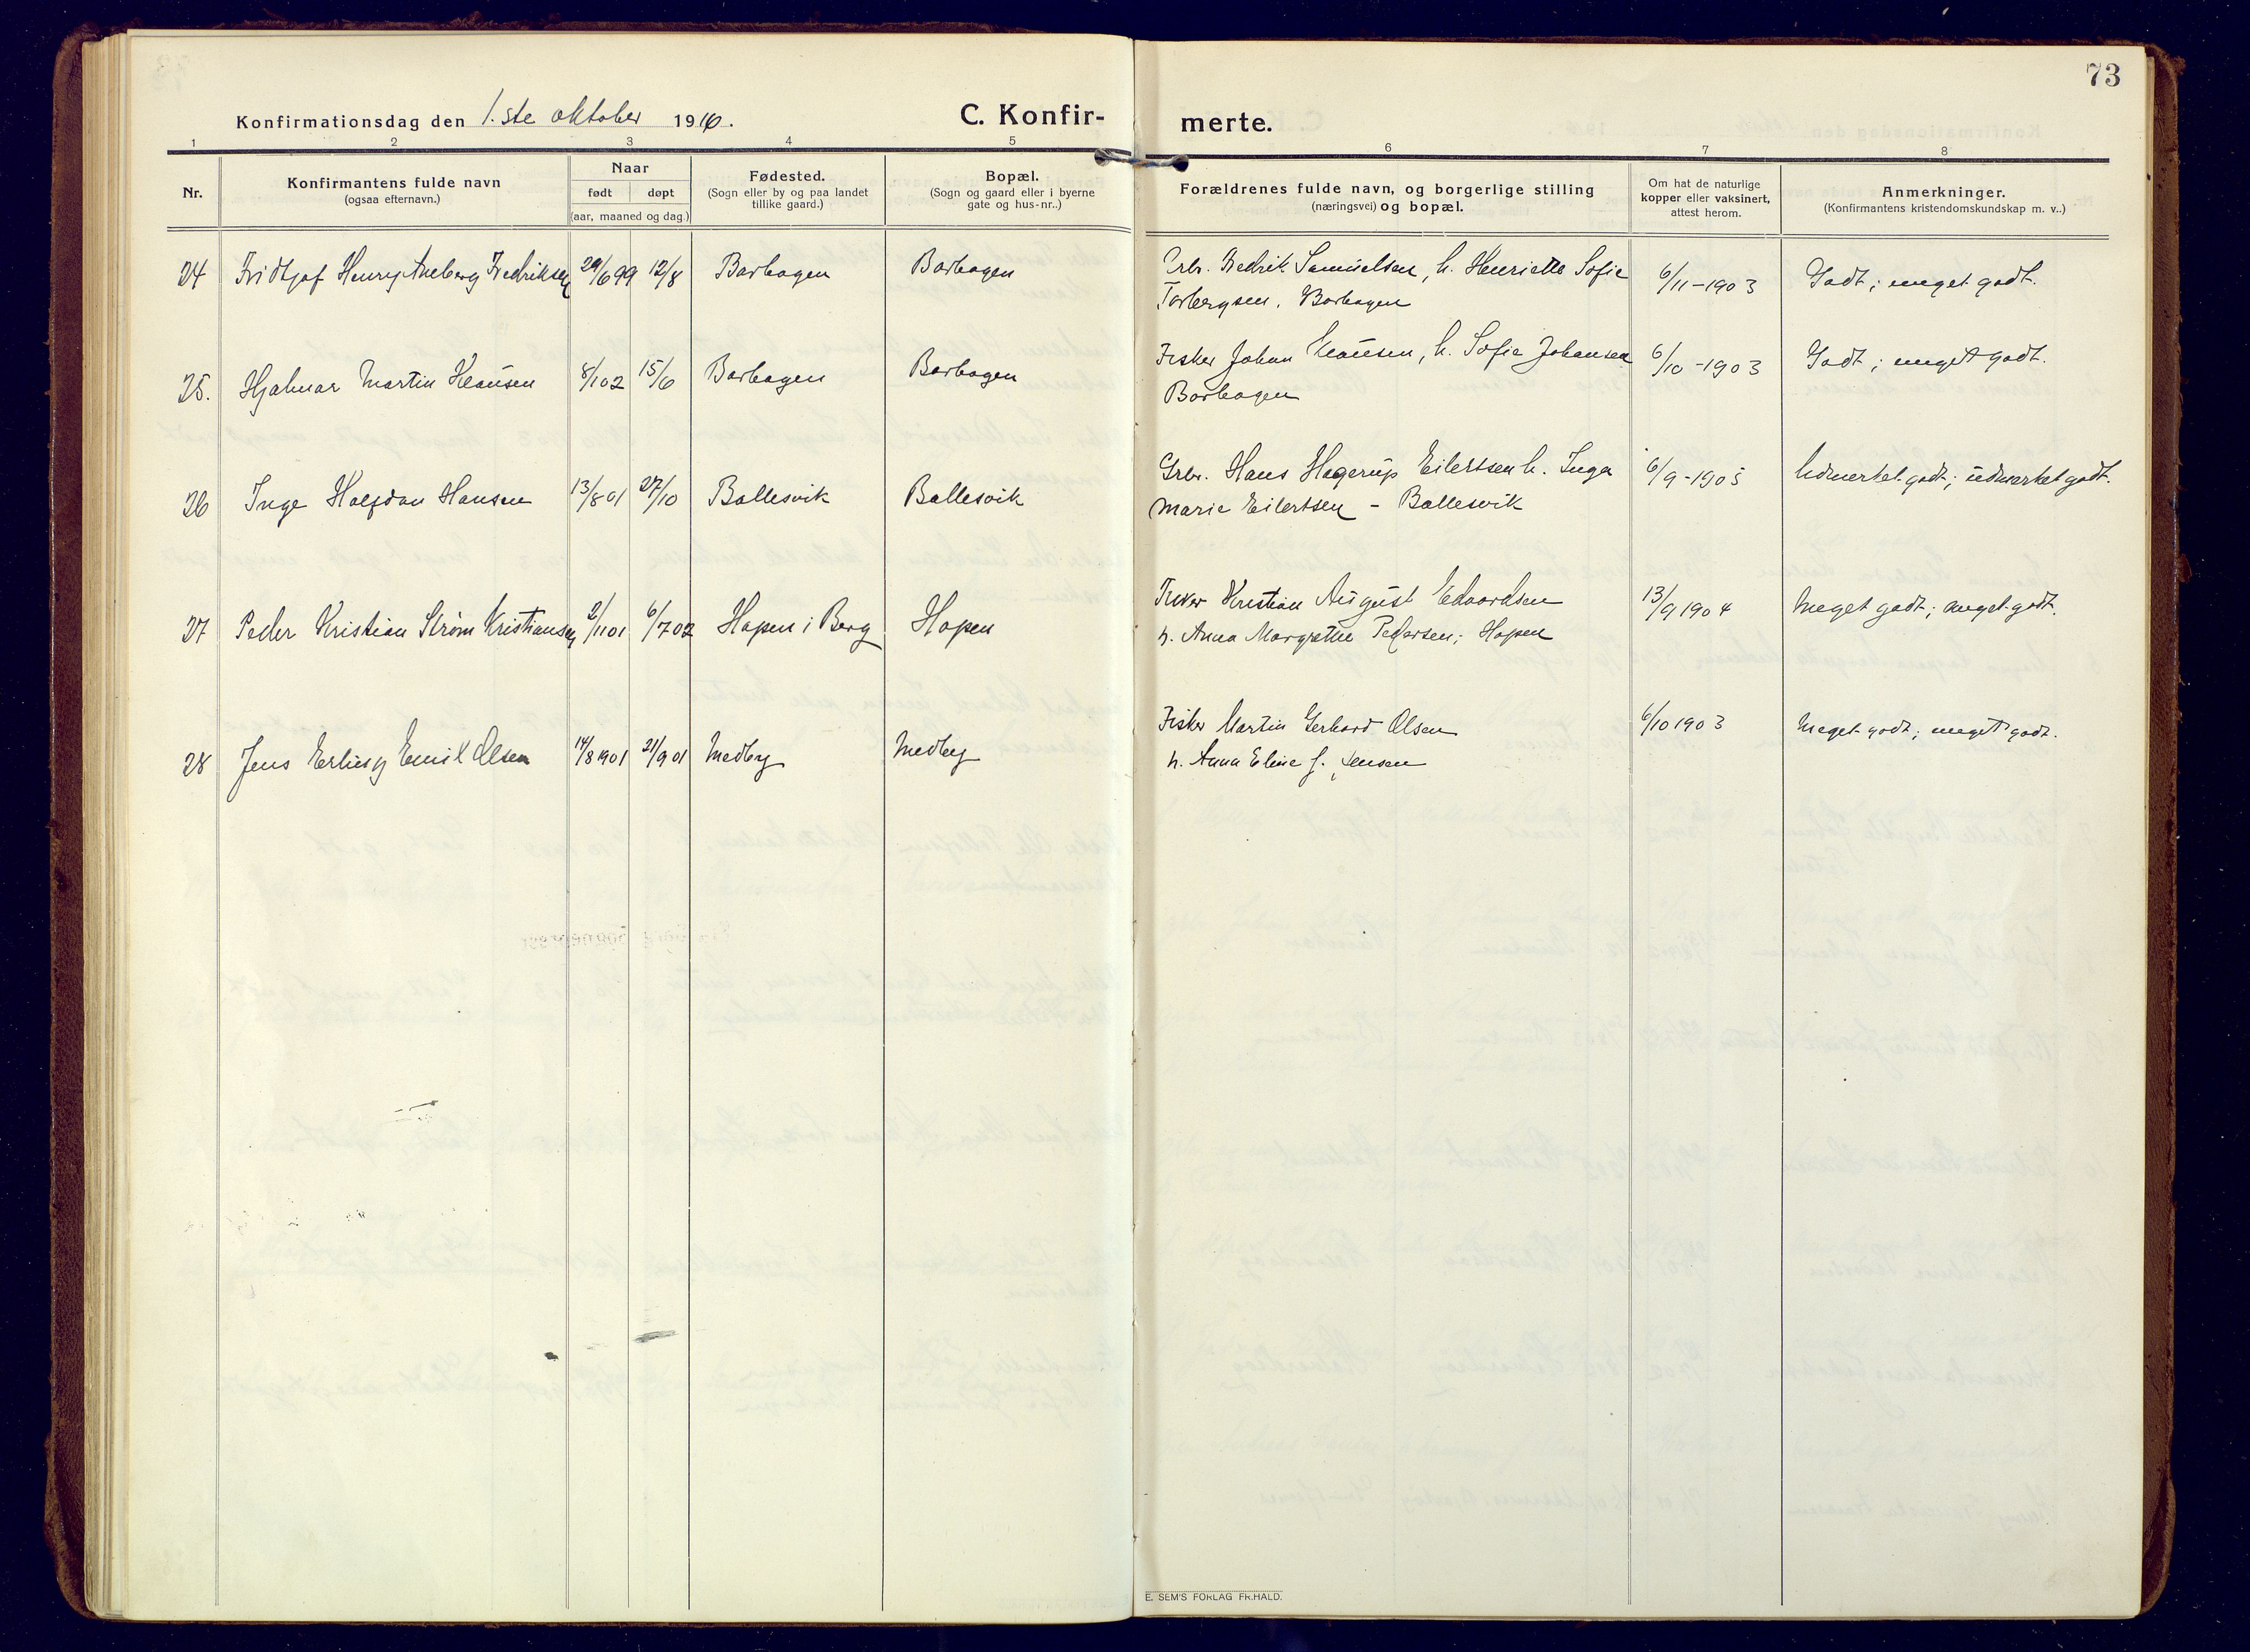 73
Konfirmationsdag den 1.ste oktober 1916.
C. Konfir-
merte.
1 2 3 4 5 6 7 8
Nr.
Konfirmantens fulde navn
(ogsaa efternavn.)
Naar
født døpt
(aar, maaned og dag.)
Fødested.
(Sogn eller by og paa landet
tillike gaard.)
Bopæl.
(Sogn og gaard eller i byerne
gate og hus-nr..)
Forældrenes fulde navn, og borgerlige stilling
(næringsvei) og bopæl.
Om hat de naturlige
kopper eller vaksinert,
attest herom.
Anmerkninger.
(Konfirmantens kristendomskundskap m. v..)
24 Fridtjof Henry Fredriksen 29/6 99 12/8 Barhagen Barhagen
Fredrik Samuelsen, h. Henriette Sofie 6/11-1903 Godt; meget godt.
Torbergsen. Barhagen
25. Hjalmar Martin Klausen 8/1 02 15/6 Barhagen Barhagen
Fisker Johan Klausen, h. Sofie Johansen 6/10-1903 Godt; meget godt.
Barhagen
26 Inge Halfdan Hansen 13/8 01 27/10 Ballesvik Ballesvik
Grbr. Hans Hagerup Eilertsen h. Inga 6/9-1905 Udmerket godt; udmerket godt.
Marie Eilertsen - Ballesvik
27 Peder Kristian Strøm Kristiansen 2/11 01 6/7 02 Hopen i Berg Hopen
Fisker Kristian August Edvardsen 13/9 1904 Meget godt; meget godt.
h. Anna Margrethe Pedersen; Hopen
28 Jens Erling Emil Olsen 14/8 1901 21/9 01 Medby Medby
Fisker Martin Gerhard Olsen 6/10 1903 Meget godt; meget godt.
h. Anna Eline f. Jensen
E. SEM'S FORLAG FR.HALD.